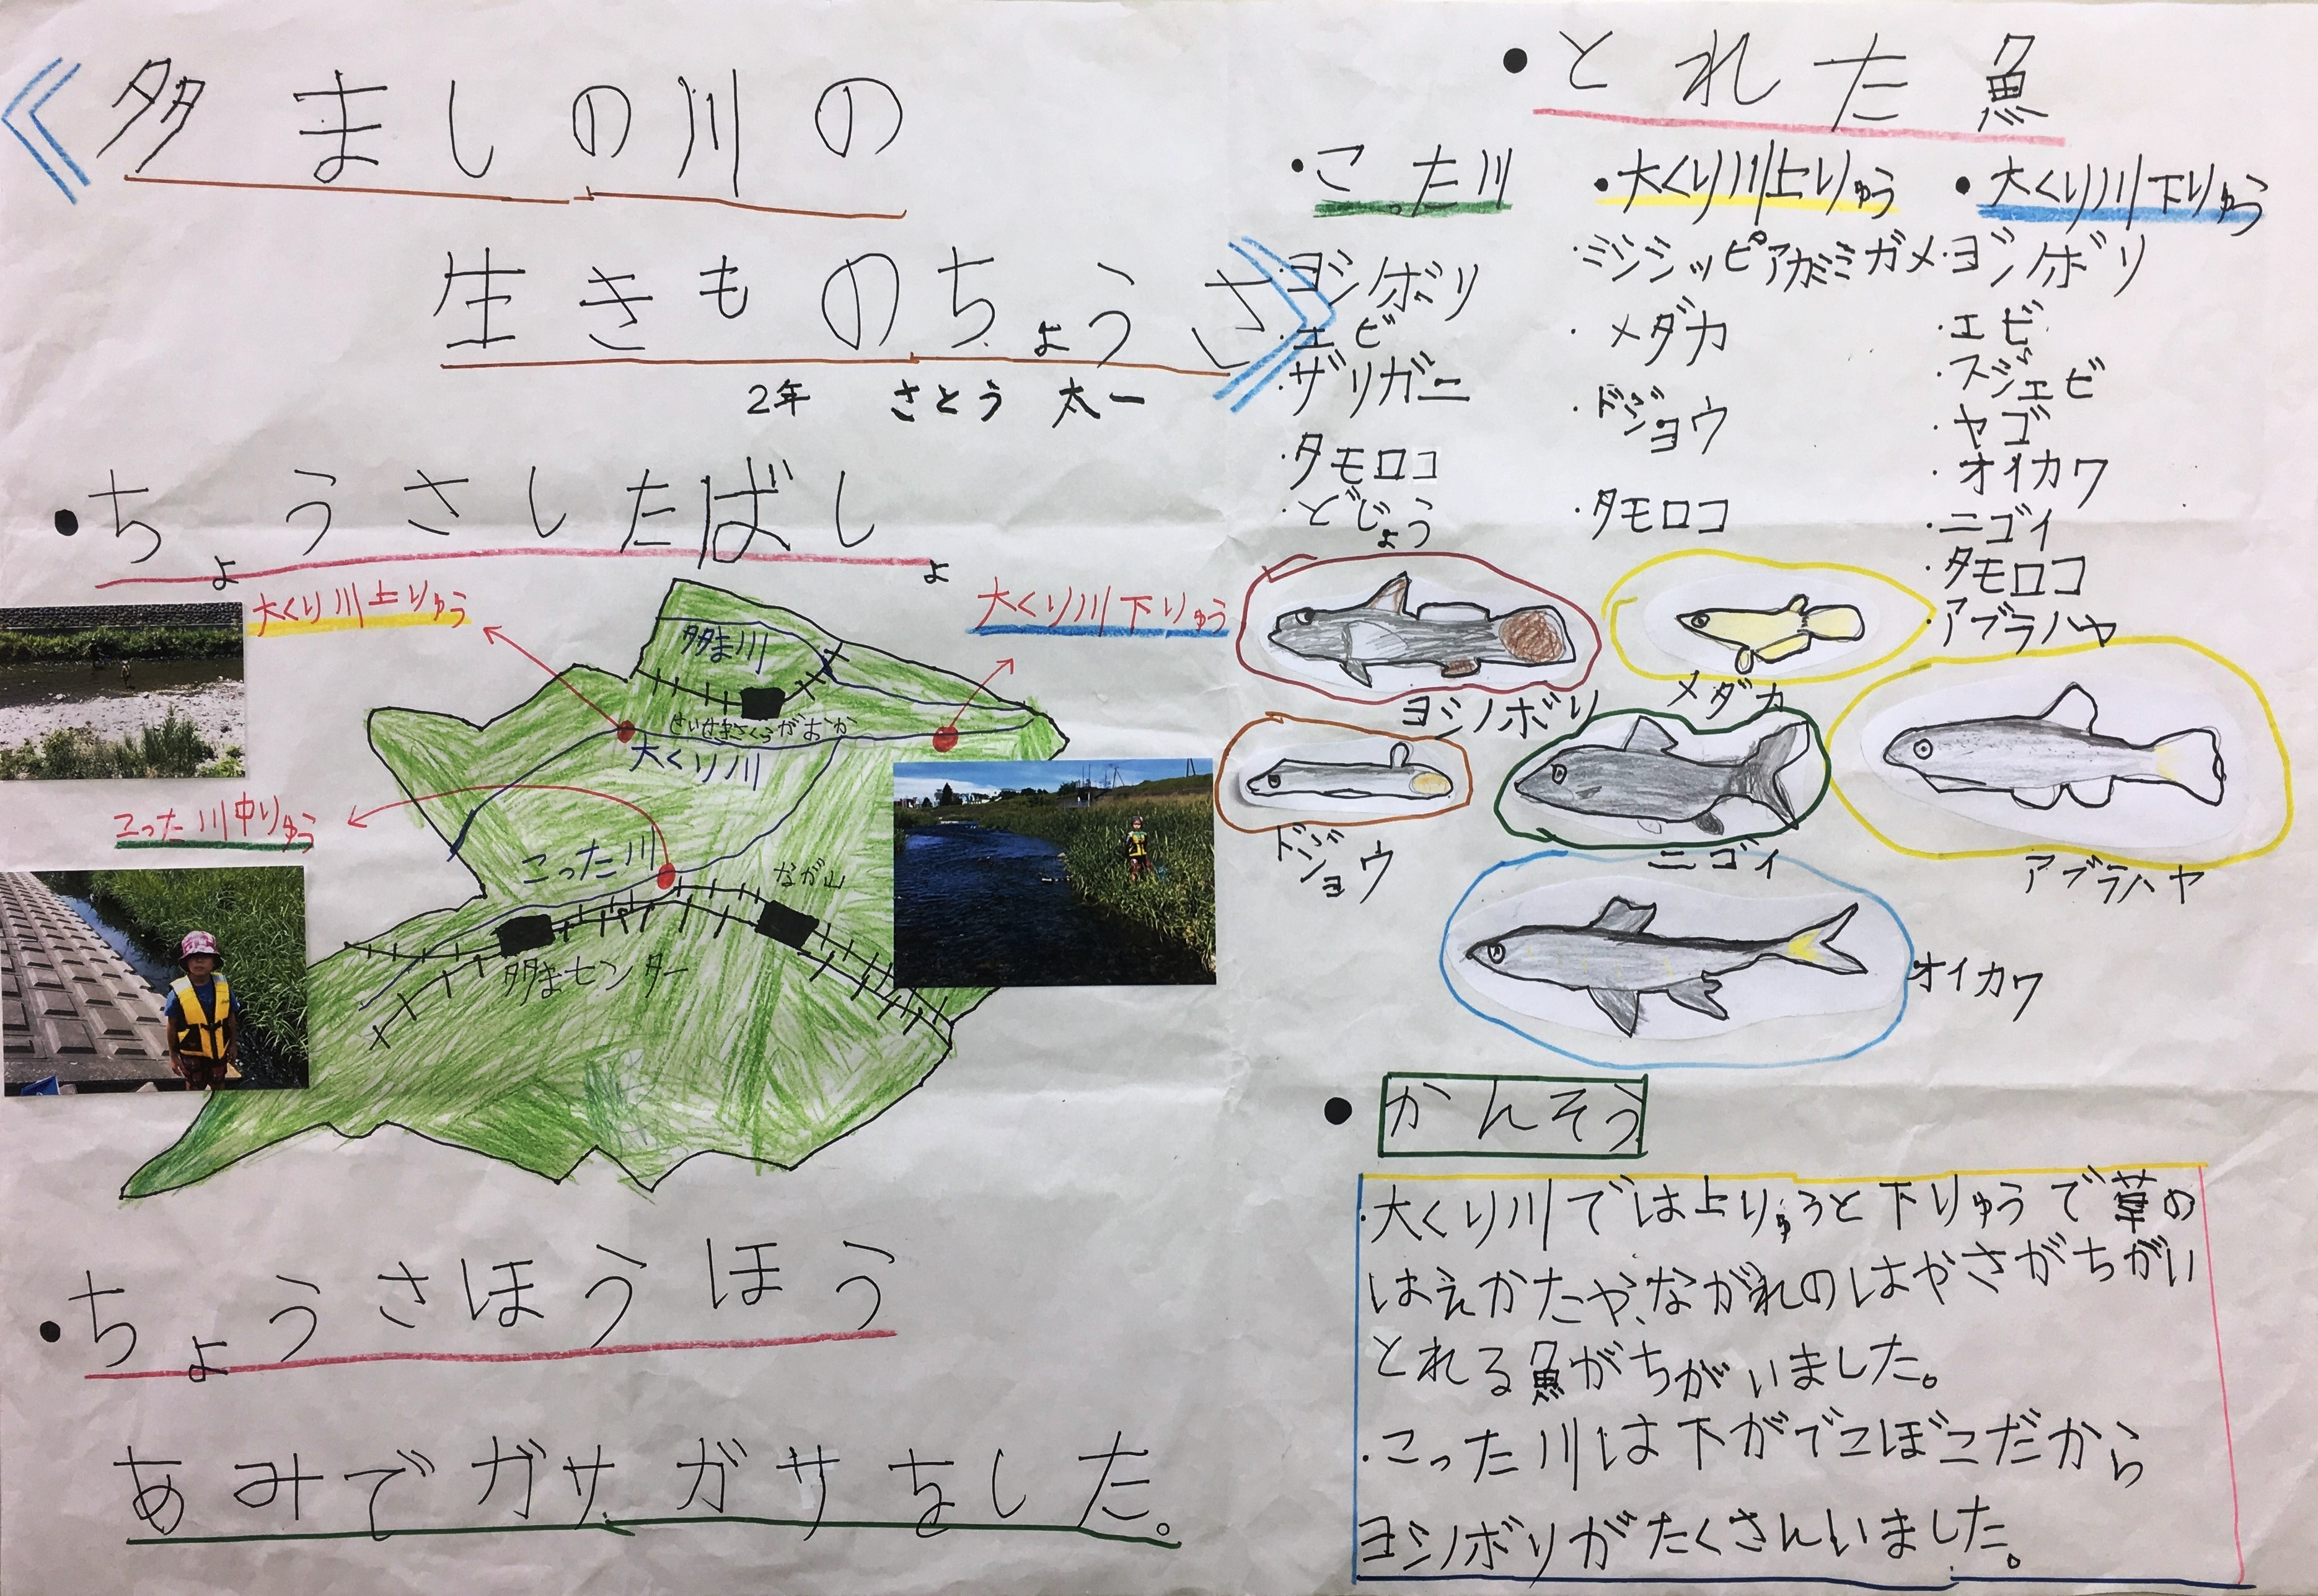 《多ましの川の
生きものちょうさ》
2年 さとう 太一
・ちょうさしたばしょ
大くり川上りゅう
大くり川下りゅう
こった川中りゅう
多ま川
せいせきさくらがおか
大くり川
こった川
なが山
多まセンター
・ちょうさほうほう
あみでガサガサをした。
・とれた魚
・こった川
・ヨシノボリ
・エビ
・ザリガニ
・タモロコ
・どじょう
・大くり川上りゅう
・ミシシッピアカミミガメ
・メダカ
・ドジョウ
・タモロコ
・大くり川下りゅう
・ヨシノボリ
・エビ
・スジエビ
・ヤゴ
・オイカワ
・ニゴイ
・タモロコ
・アブラハヤ
ヨシノボリ
メダカ
ドジョウ
ニゴイ
アブラハヤ
オイカワ
・かんそう
・大くり川では上りゅうと下りゅうで草の
はえかたや、ながれのはやさがちがい
とれる魚がちがいました。
・こった川は下がでこぼこだから
ヨシノボリがたくさんいました。